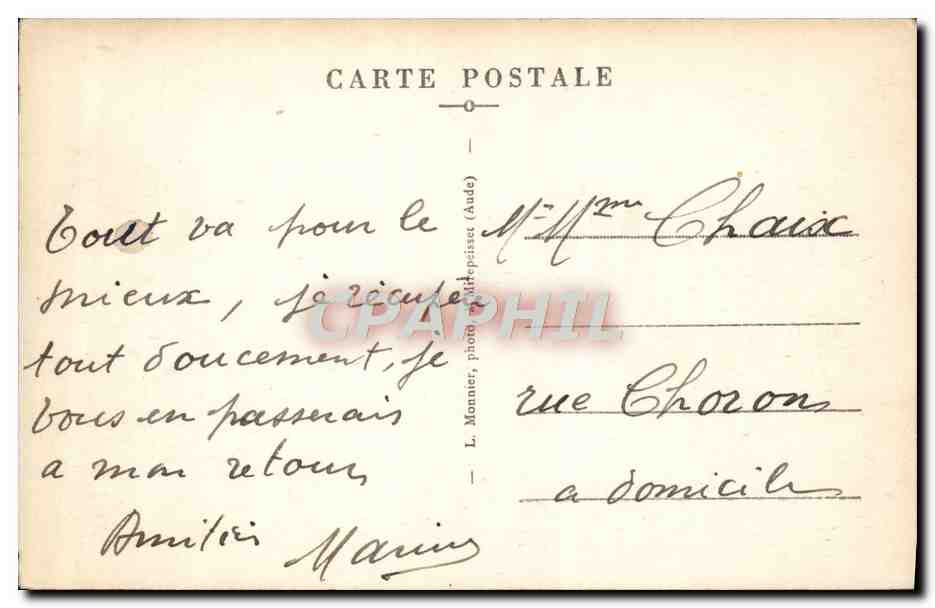 CARTE POSTALE
Tout va pour le
mieux, je récupère
tout doucement, je
vous en passerais
a mon retour
Amitiés
Marius
— L. Monnier, photo, à Mirepeisset (Aude) —
Mr Mme Chaix
rue Choron
a domicile
CPAPHIL